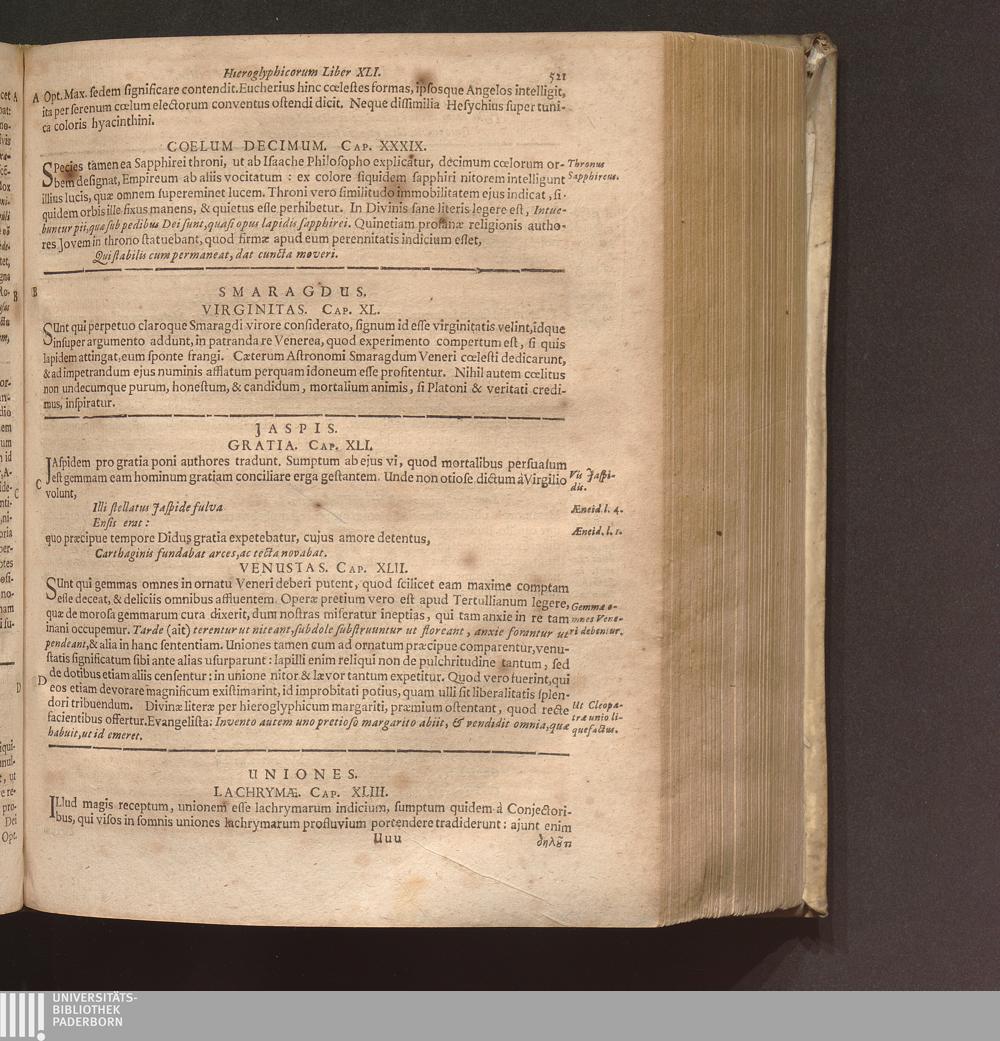 Hieroglyphicorum Liber XLI. 521
A Opt. Max. sedem significare contendit. Eucherius hinc cœlestes formas, ipsosque Angelos intelligit,
ita per serenum cœlum electorum conventus ostendi dicit. Neque dissimilia Hesychius super tuni-
ca coloris hyacinthini.
COELUM DECIMUM. CAP. XXXIX.
SPecies tamen ea Sapphirei throni, ut ab Isaache Philosopho explicatur, decimum cœlorum or-
bem designat, Empireum ab aliis vocitatum : ex colore siquidem sapphiri nitorem intelligunt
illius lucis, quæ omnem supereminet lucem. Throni vero similitudo immobilitatem ejus indicat, si-
quidem orbis ille fixus manens, & quietus esse perhibetur. In Divinis sane literis legere est, Intue-
buntur pii, quæ sub pedibus Dei sunt, quasi opus lapidis sapphirei. Quinetiam profanæ religionis autho-
res Jovem in throno statuebant, quod firmæ apud eum perennitatis indicium esset,
Qui stabilis cum permaneat, dat cuncta moveri.
Thronus
Sapphireus.
B SMARAGDUS.
VIRGINITAS. CAP. XL.
SUnt qui perpetuo claroque Smaragdi virore considerato, signum id esse virginitatis velint, idque
insuper argumento addunt, in patranda re Venerea, quod experimento compertum est, si quis
lapidem attingat, eum sponte frangi. Cæterum Astronomi Smaragdum Veneri cœlesti dedicarunt,
& ad impetrandum ejus numinis afflatum perquam idoneum esse profitentur. Nihil autem cœlitus
non undecumque purum, honestum, & candidum, mortalium animis, si Platoni & veritati credi-
mus, inspiratur.
JASPIS.
GRATIA. CAP. XLI.
JAspidem pro gratia poni authores tradunt. Sumptum ab ejus vi, quod mortalibus persuasum
C est gemmam eam hominum gratiam conciliare erga gestantem. Unde non otiose dictum à Virgilio
volunt,
Illi stellatus Jaspide fulva
Ensis erat :
quo præcipue tempore Didus gratia expetebatur, cujus amore detentus,
Carthaginis fundabat arces, ac tecta novabat.
Vis Jaspi-
dis.
Æneid. l. 4.
Æneid. l. 1.
VENUSTAS. CAP. XLII.
SUnt qui gemmas omnes in ornatu Veneri deberi putent, quod scilicet eam maxime comptam
esse deceat, & deliciis omnibus affluentem. Operæ pretium vero est apud Tertullianum legere,
quæ de morosa gemmarum cura dixerit, dum nostras miseratur ineptias, qui tam anxie in re tam
inani occupemur. Tarde (ait) terentur ut niteant, subdole substruuntur ut floreant, anxie forantur ut
pendeant, & alia in hanc sententiam. Uniones tamen cum ad ornatum præcipue comparentur, venu-
statis significatum sibi ante alias usurparunt : lapilli enim reliqui non de pulchritudine tantum, sed
D de dotibus etiam aliis censentur : in unione nitor & lævor tantum expetitur. Quod vero fuerint, qui
eos etiam devorare magnificum existimarint, id improbitati potius, quam ulli sit liberalitatis splen-
dori tribuendum. Divinæ literæ per hieroglyphicum margariti, præmium ostentant, quod recte
facientibus offertur. Evangelista : Invento autem uno pretioso margarito abiit, & vendidit omnia, quæ
habuit, ut id emeret.
Gemmæ o-
mnes Vene-
ri debentur.
Ut Cleopa-
træ unio li-
quefactus.
UNIONES.
LACHRYMÆ. CAP. XLIII.
ILlud magis receptum, unionem esse lachrymarum indicium, sumptum quidem à Conjectori-
bus, qui visos in somnis uniones lachrymarum profluvium portendere tradiderunt : ajunt enim
Uuu δηλȣ̃σι
UNIVERSITÄTS-
BIBLIOTHEK
PADERBORN